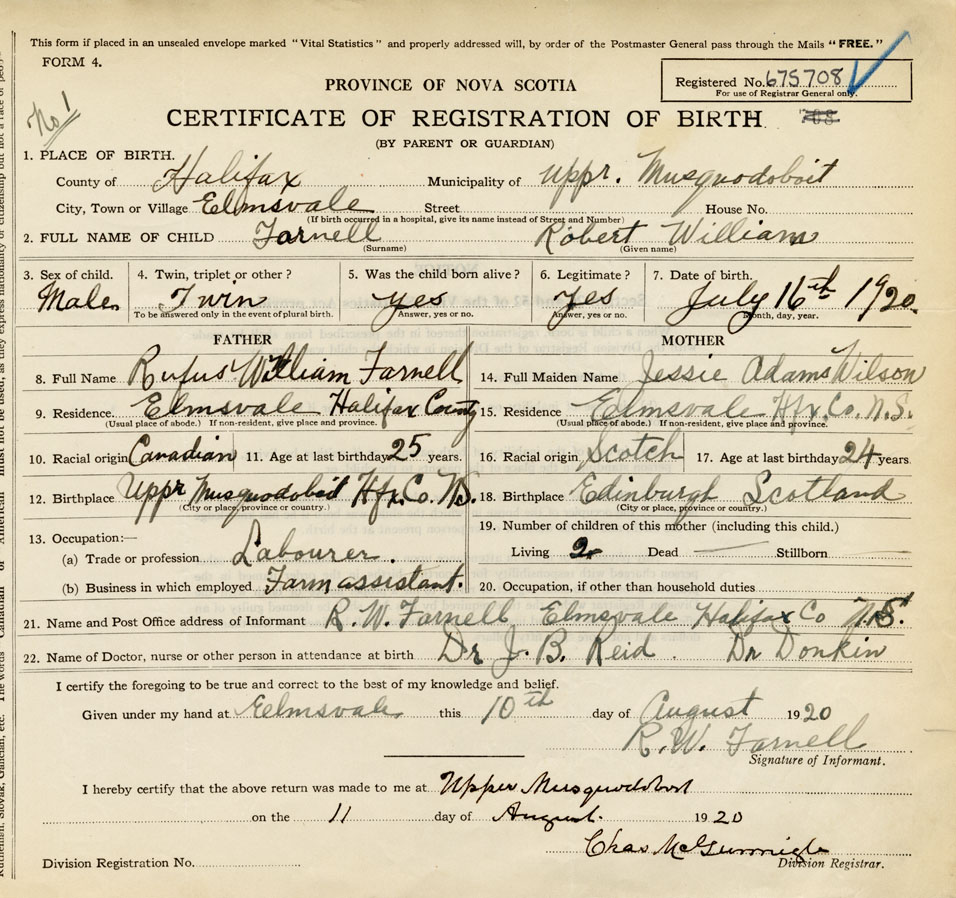 This form if placed in an unsealed envelope marked "Vital Statistics" and properly addressed will, by order of the Postmaster General pass through the Mails "FREE."
FORM 4.
Registered No. 675708
For use of Registrar General only.
PROVINCE OF NOVA SCOTIA
No 1
CERTIFICATE OF REGISTRATION OF BIRTH
(BY PARENT OR GUARDIAN)
1. PLACE OF BIRTH.
County of Halifax Municipality of Uppr. Musquodoboit
City, Town or Village Elmsvale Street House No.
(If birth occurred in a hospital, give its name instead of Street and Number)
2. FULL NAME OF CHILD Farnell Robert William
(Surname) (Given name)
3. Sex of child. 4. Twin, triplet or other? 5. Was the child born alive? 6. Legitimate? 7. Date of birth.
Male Twin yes yes July 16th 1920
To be answered only in the event of plural birth. Answer, yes or no. Answer, yes or no. Month, day, year.
FATHER MOTHER
8. Full Name Rufus William Farnell 14. Full Maiden Name Jessie Adams Wilson
9. Residence. Elmsvale Halifax County 15. Residence Elmsvale Hfx. Co. N.S.
(Usual place of abode.) If non-resident, give place and province. (Usual place of abode.) If non-resident, give place and province.
10. Racial origin Canadian 11. Age at last birthday 25 years. 16. Racial origin Scotch 17. Age at last birthday 24 years.
12. Birthplace Uppr Musquodoboit Hfx. Co. N.S. 18. Birthplace Edinburgh Scotland
(City or place, province or country.) (City or place, province or country.)
13. Occupation:— 19. Number of children of this mother (including this child.)
(a) Trade or profession Labourer Living 2 Dead — Stillborn —
(b) Business in which employed Farm assistant. 20. Occupation, if other than household duties
21. Name and Post Office address of Informant R. W. Farnell Elmsvale Halifax Co N.S.
22. Name of Doctor, nurse or other person in attendance at birth Dr J. B. Reid. Dr Donkin
I certify the foregoing to be true and correct to the best of my knowledge and belief.
Given under my hand at Elmsvale this 10th day of August 1920
R. W. Farnell
Signature of Informant.
I hereby certify that the above return was made to me at Upper Musquodoboit
on the 11 day of August. 1920
Chas
Division Registration No. Division Registrar.